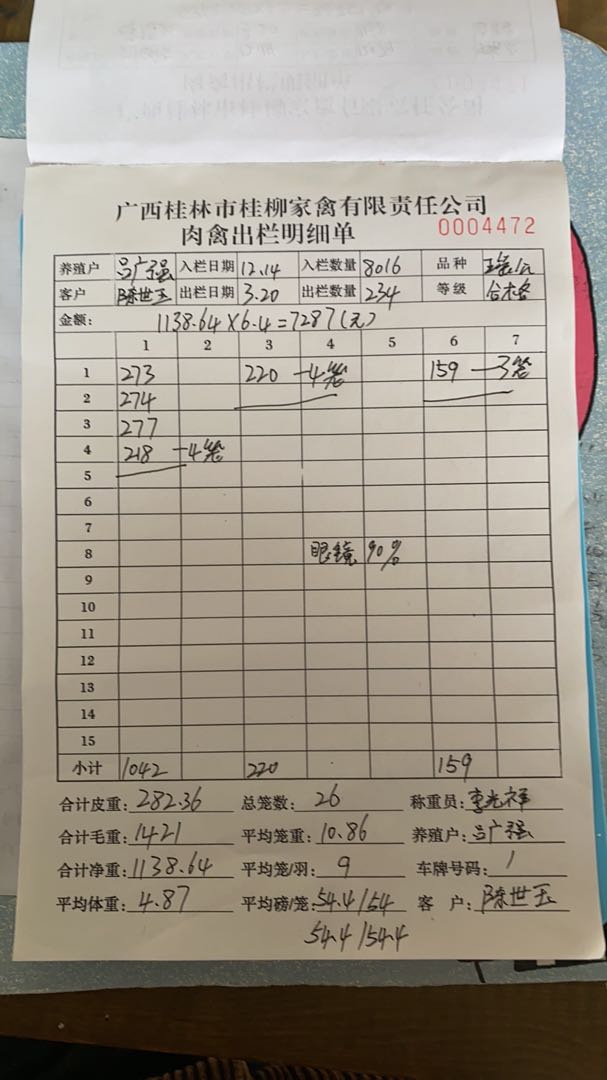 广西桂林市桂柳家禽有限责任公司
肉禽出栏明细单 0004472
养殖户 吕广强 入栏日期 12.14 入栏数量 8016 品种
客户 陈世玉 出栏日期 3.20 出栏数量 234 等级 合格
金额: 1138.64×6.4=7287(元)
1 2 3 4 5 6 7
1 273 220 -4笼 159 -3笼
2 274
3 277
4 218 -4笼
5
6
7
8 眼镜 90%
9
10
11
12
13
14
15
小计 1042 220 159
合计皮重: 282.36 总笼数: 26 称重员: 李光祥
合计毛重: 1421 平均笼重: 10.86 养殖户: 吕广强
合计净重: 1138.64 平均笼/羽: 9 车牌号码: 1
平均体重: 4.87 平均磅/笼: 54.4/54 客 户: 陈世玉
54.4/54.4